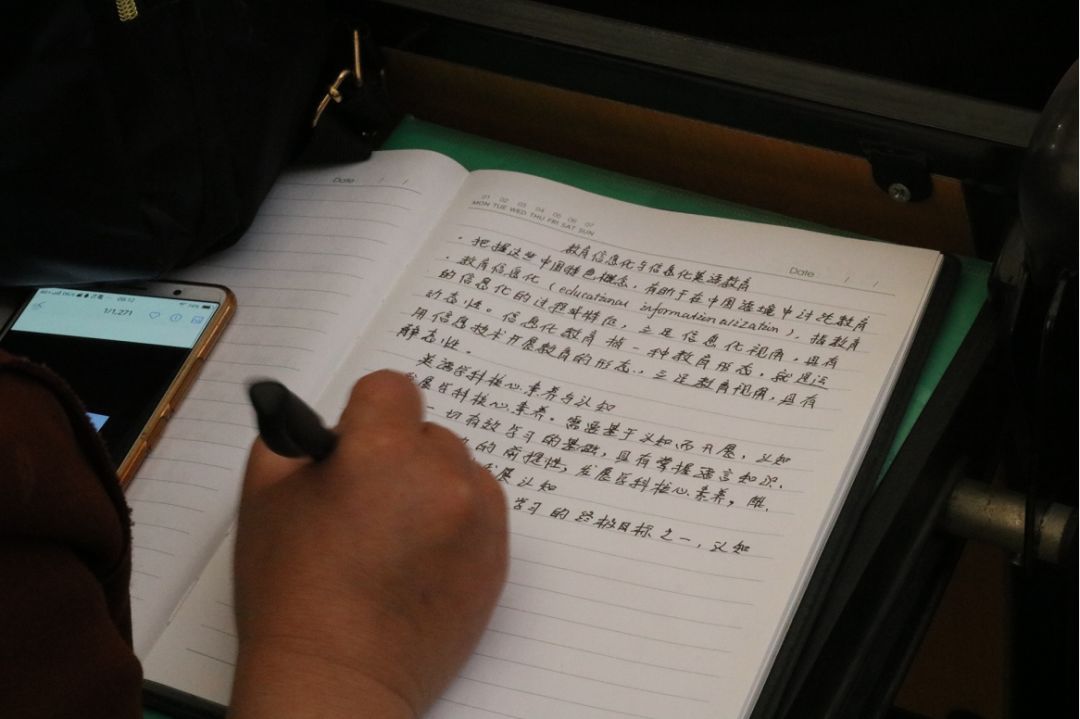 09:12
1/1,271
Date / /
01 02 03 04 05 06 07
MON TUE WED THU FRI SAT SUN
Date / /
教育信息化与信息化英语教育
·把握这些中国特色概念，有助于在中国语境中讨论教育
·教育信息化（educational informationalization），指教育
的信息化的过程或特征，立足信息化视角，具有
动态性。信息化教育指一种教育形态，就是运
用信息技术开展教育的形态，立足教育视角，具有
静态性。
英语学科核心素养与认知
发展学科核心素养，需要基于认知而开展，认知
一切有效学习的基础，具有掌握语言知识、
的前提性，发展学科核心素养，离
发展认知
学习的终极目标之一，认知